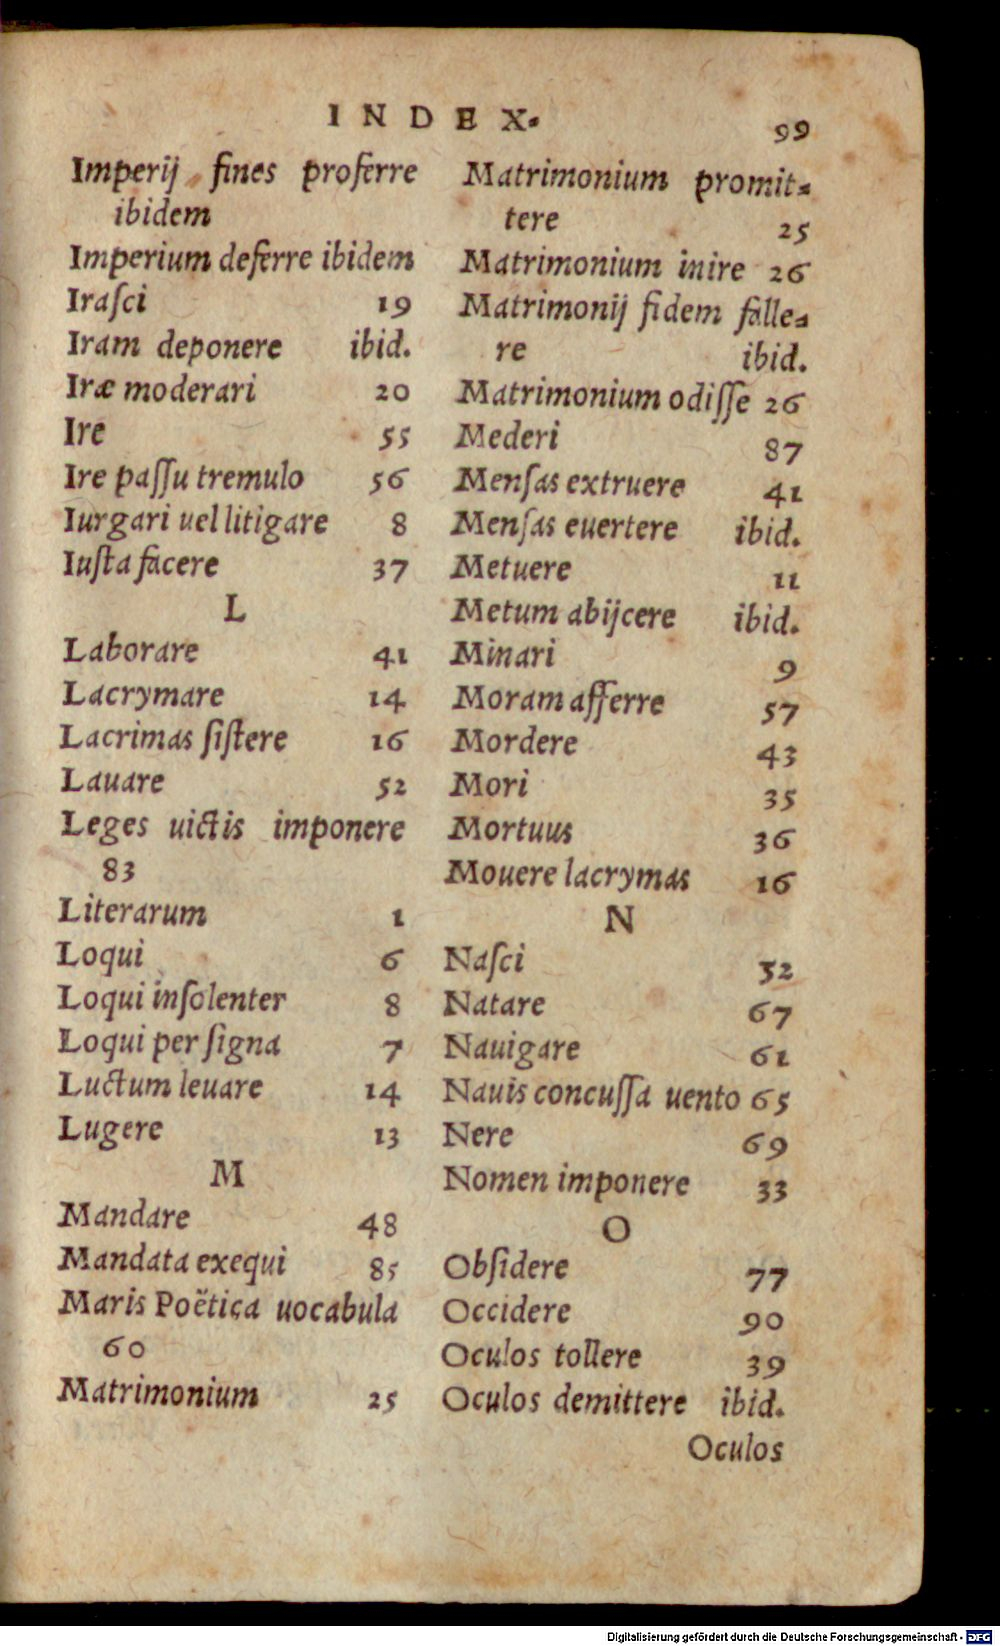 INDEX.
99
Imperij fines proferre
ibidem
Imperium deferre ibidem
Iraſci 19
Iram deponere ibid.
Iræ moderari 20
Ire 55
Ire paſſu tremulo 56
Iurgari uel litigare 8
Iuſta facere 37
L
Laborare 41
Lacrymare 14
Lacrimas ſiſtere 16
Lauare 52
Leges uictis imponere
83
Literarum 1
Loqui 6
Loqui inſolenter 8
Loqui per ſigna 7
Luctum leuare 14
Lugere 13
M
Mandare 48
Mandata exequi 85
Maris Poëtica uocabula
60
Matrimonium 25
Matrimonium promit-
tere 25
Matrimonium inire 26
Matrimonij fidem falle-
re ibid.
Matrimonium odiſſe 26
Mederi 87
Menſas extruere 41
Menſas euertere ibid.
Metuere 11
Metum abijcere ibid.
Minari 9
Moram afferre 57
Mordere 43
Mori 35
Mortuus 36
Mouere lacrymas 16
N
Naſci 32
Natare 67
Nauigare 61
Nauis concuſſa uento 65
Nere 69
Nomen imponere 33
O
Obſidere 77
Occidere 90
Oculos tollere 39
Oculos demittere ibid.
Oculos
Digitalisierung gefördert durch die Deutsche Forschungsgemeinschaft - DFG